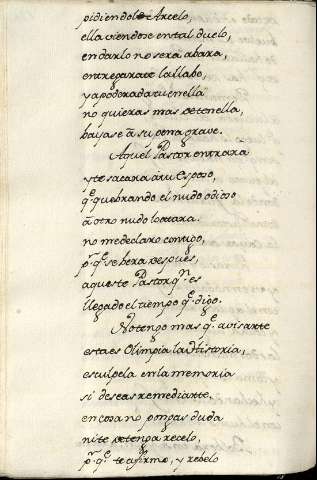 pidiendole Arcelo,
ella viendose en tal duelo,
en darlo no será abara,
entregarate la llabe,
y apoderada tu en ella
no quieras mas detenella,
bayase a su pena grave.
Aquel Pastor entrara
y te sacara a tu Esposo,
q.e quebrando el nudo odioso
a otro nudo lo atara.
no me declaro contigo,
p.r q.e se bera despues,
aqueste Pastor q.n es
llegado el tiempo q.e digo.
No tengo mas q.e avisarte
esta es Olimpia la Historia,
esculpela en la memoria
si deseas remediarte,
en cosa no pongas duda
ni te detenga recelo,
p.r q.e te afirmo, y rebelo